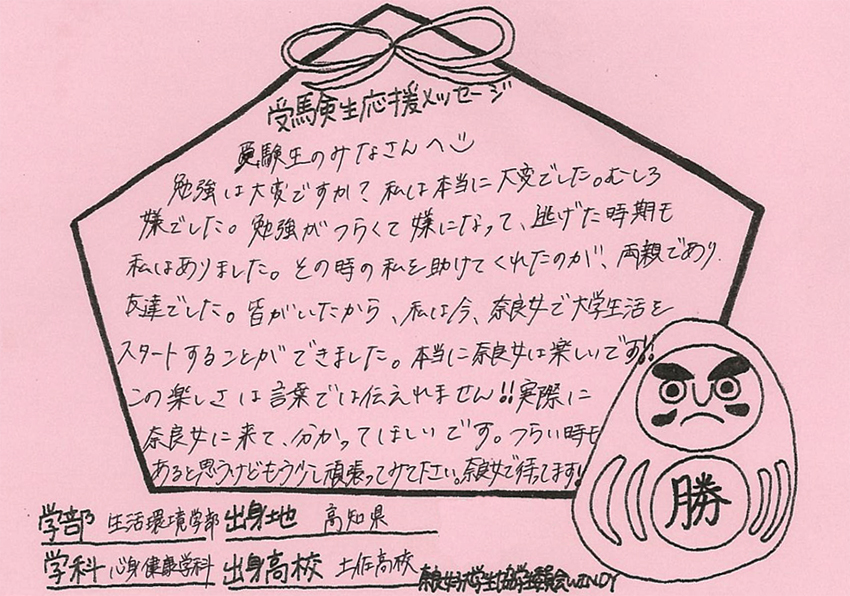 受験生応援メッセージ
受験生のみなさんへ
勉強は大変ですか？私は本当に大変でした。むしろ
嫌でした。勉強がつらくて嫌になって、逃げた時期も
私はありました。その時の私を助けてくれたのが、両親であり、
友達でした。皆がいたから、私は今、奈良女で大学生活を
スタートすることができました。本当に奈良女は楽しいです!!
この楽しさは言葉では伝えれません!!実際に
奈良女に来て、分かってほしいです。つらい時も
あると思うけどもう少し頑張ってみて下さい。奈良女で待ってます!
勝
学部 生活環境学部 出身地 高知県
学科 心身健康学科 出身高校 土佐高校
奈良女子大学生協学生委員会WINDY